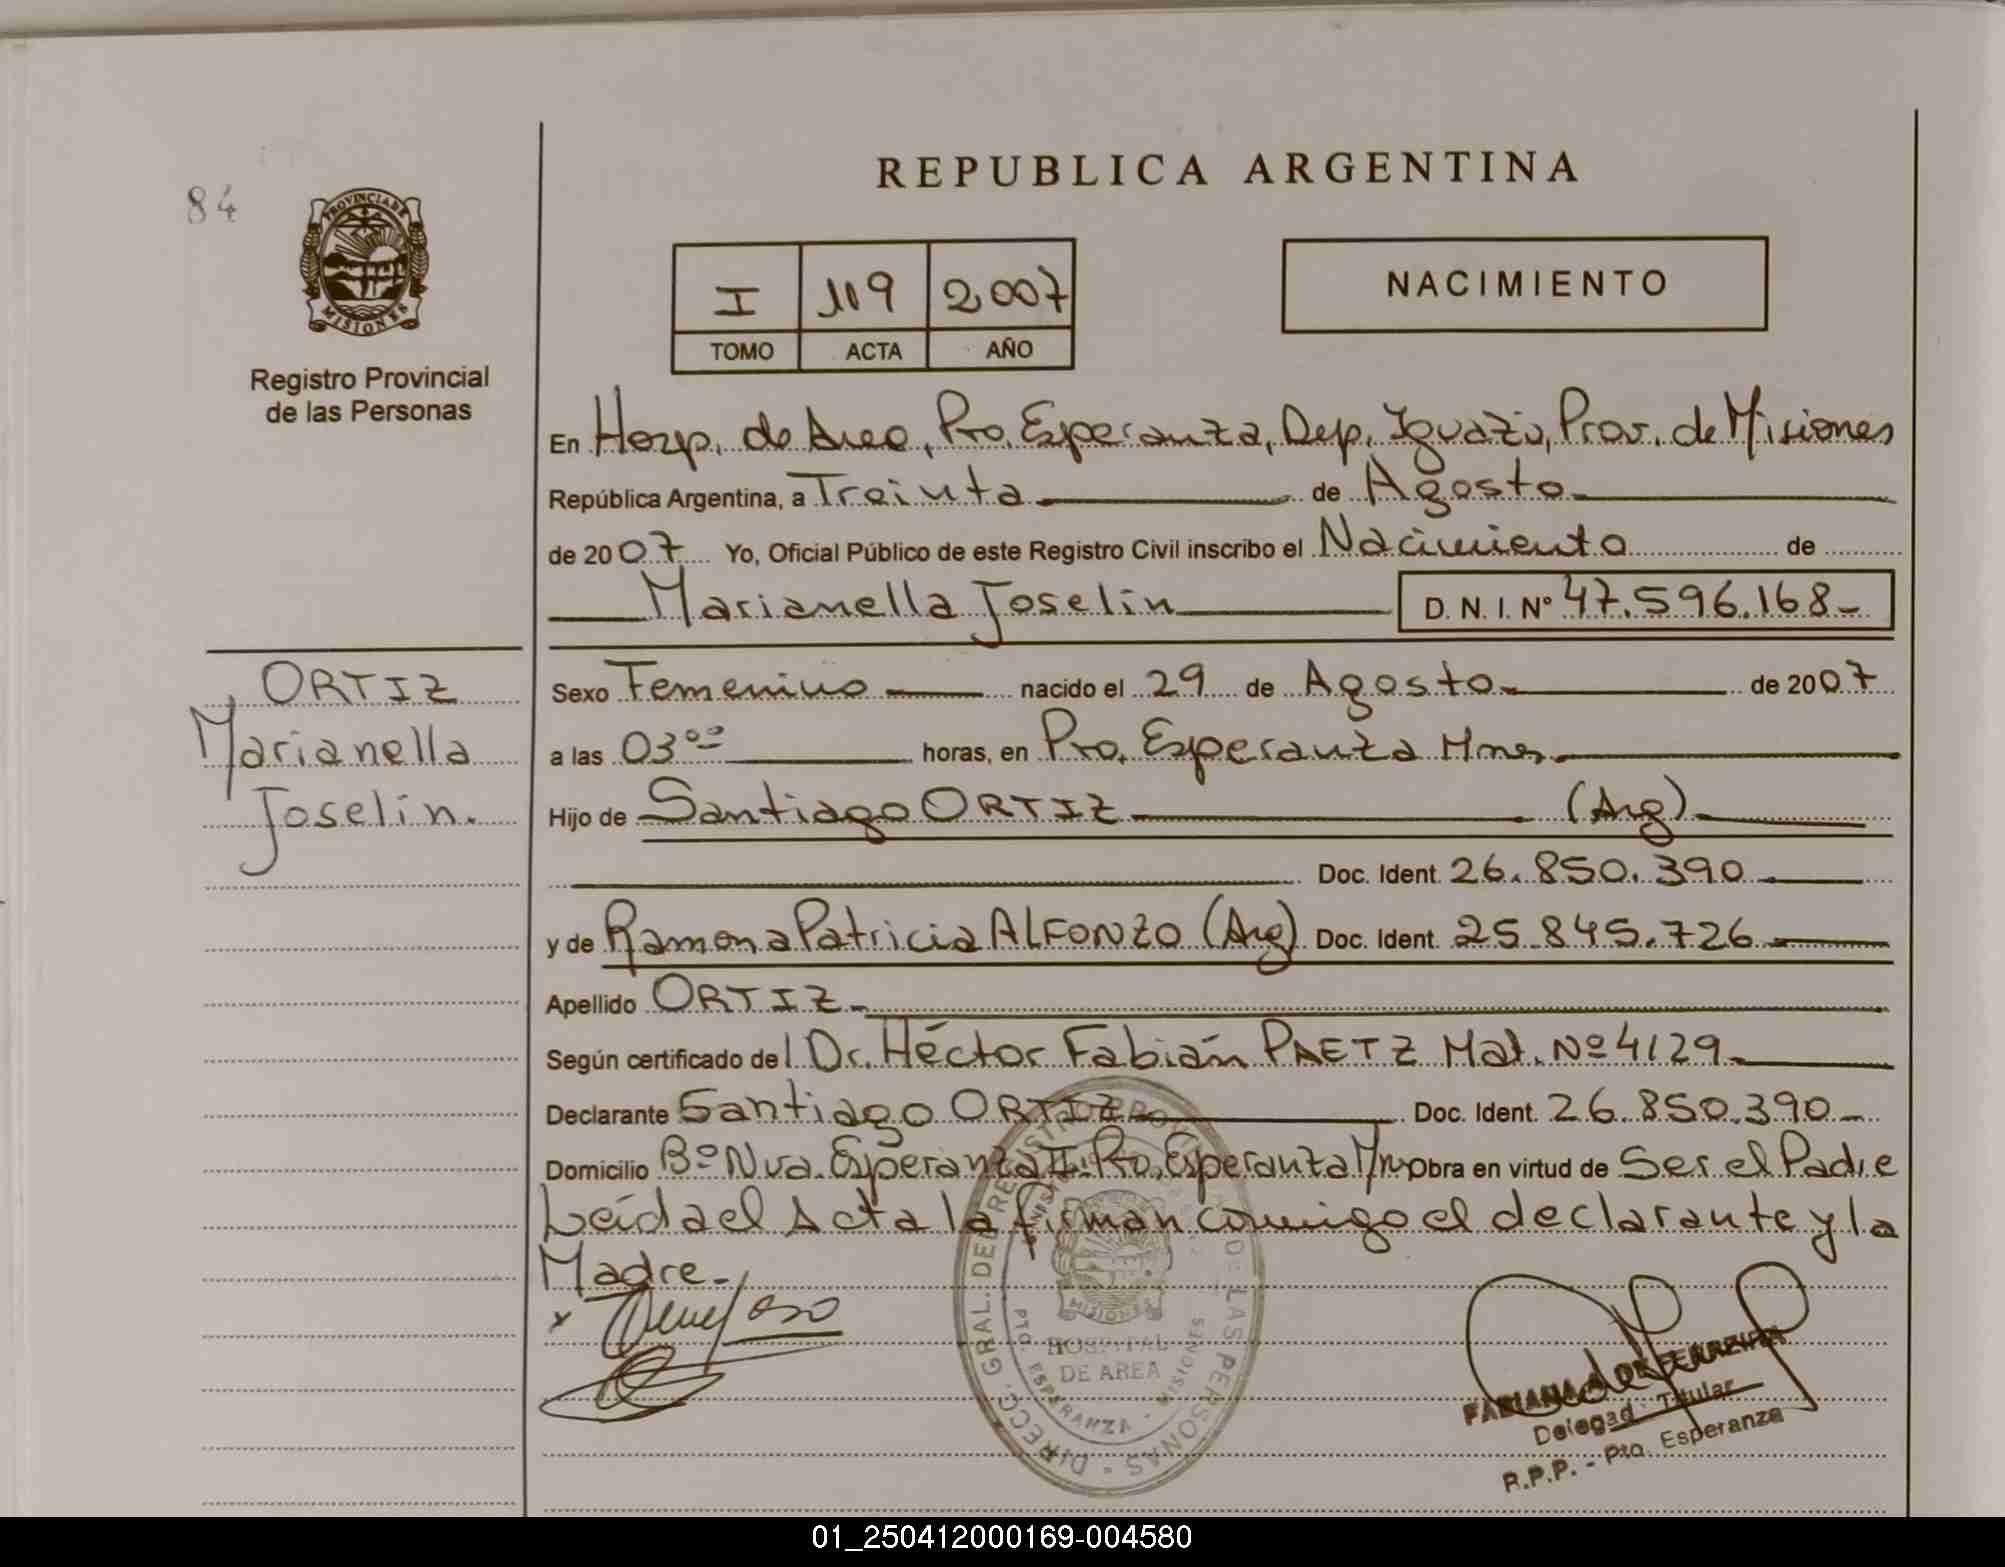 REPUBLICA ARGENTINA
84
PROVINCIA DE
MISIONES
Registro Provincial
de las Personas
I 119 2007
TOMO ACTA AÑO
NACIMIENTO
En Hosp. de Area, Pto. Esperanza, Dep. Iguazú, Prov. de Misiones
República Argentina, a Treinta de Agosto
de 2007 Yo, Oficial Público de este Registro Civil inscribo el Nacimiento de
Marianella Joselin D. N. I. Nº 47.596.168-
ORTIZ
Marianella
Joselin.
Sexo Femenino nacido el 29 de Agosto de 2007
a las 03°° horas, en Pto. Esperanza Mnes
Hijo de Santiago ORTIZ (Arg)
Doc. Ident. 26.850.390
y de Ramona Patricia ALFONZO (Arg) Doc. Ident. 25.845.726
Apellido ORTIZ
Según certificado del Dr. Héctor Fabián PAETZ Mat. Nº 4129
Declarante Santiago ORTIZ Doc. Ident. 26.850.390
Domicilio Bº Nva. Esperanza II. Pto. Esperanza Mn Obra en virtud de Ser el Padre
Leída el Acta la firman conmigo el declarante y la
Madre.
DIRECC. GRAL. DEL REGISTRO PROVINCIAL DE LAS PERSONAS
MISIONES
HOSPITAL
DE AREA
PTO. ESPERANZA - MISIONES
FERREIRA
Delegad Titular
R.P.P. - Pto. Esperanza
01_250412000169-004580